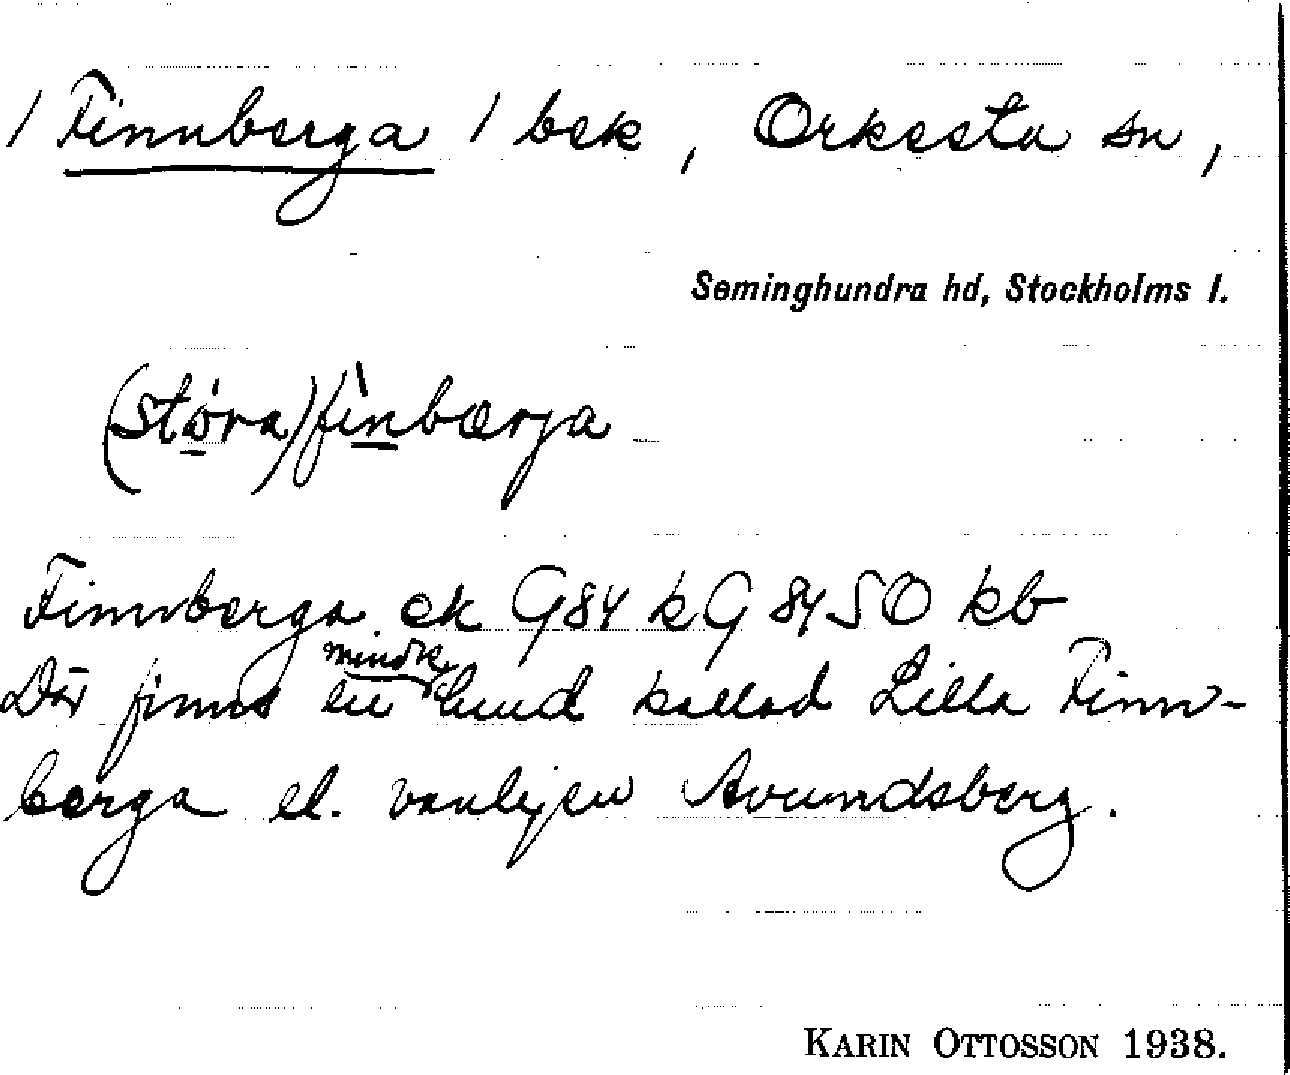 / Finnberga / bek, Orkesta sn,
Seminghundra hd, Stockholms l.
(stòra) fìnbærja
Finnberga ek G84 k G 84 SO kb
Där finns en mindre lund kallad Lilla Finn-
berga el. vanligen Avundsberg.
KARIN OTTOSSON 1938.